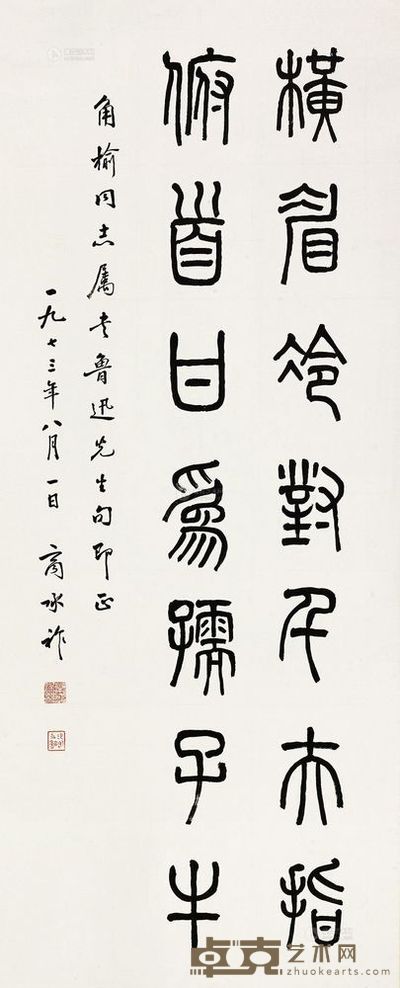 橫眉冷對千夫指
俯首甘爲孺子牛
角榆同志属书魯迅先生句即正
一九七三年八月一日 商承祚
卓克艺术网
zhuokearts.com